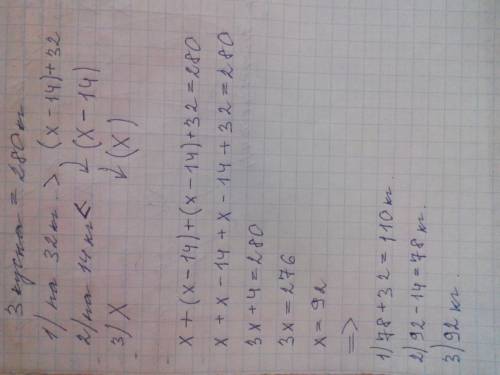 3 куска = 280 кг
1) на 32кг. > (x - 14) + 32
2) на 14кг < ↓ (x - 14)
3) X ↓ (x)
x + (x - 14) + (x - 14) + 32 = 280
x + x - 14 + x - 14 + 32 = 280
3x + 4 = 280
3x = 276
x = 92
=>
1) 78 + 32 = 110 кг.
2) 92 - 14 = 78 кг.
3) 92 кг.